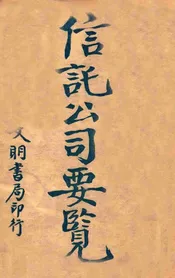 信託公司要覧
文明書局印行